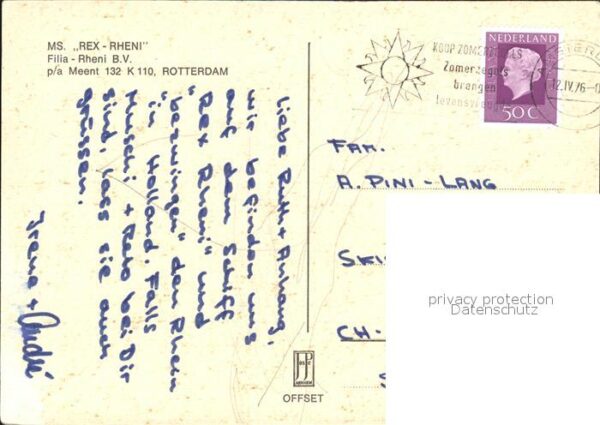 MS. „REX - RHENI"
Filia - Rheni B.V.
p/a Meent 132 K 110, ROTTERDAM
Liebe Ruth + Anhang,
wir befinden uns
auf dem Schiff
"Rex Rheni" und
"bezwingen" den Rhein
in Holland. Falls
Muschi + Reto bei Dir
sind, lass sie auch
grüssen.
Irene + André
KOOP ZOMERZEGELS
Zomerzegels
brengen
levensvreugde
12.IV.76
NEDERLAND
50 C
FAM.
A. PINI - LANG
SKI
CH -
S
privacy protection
Datenschutz
JP
ARNHEM
OFFSET